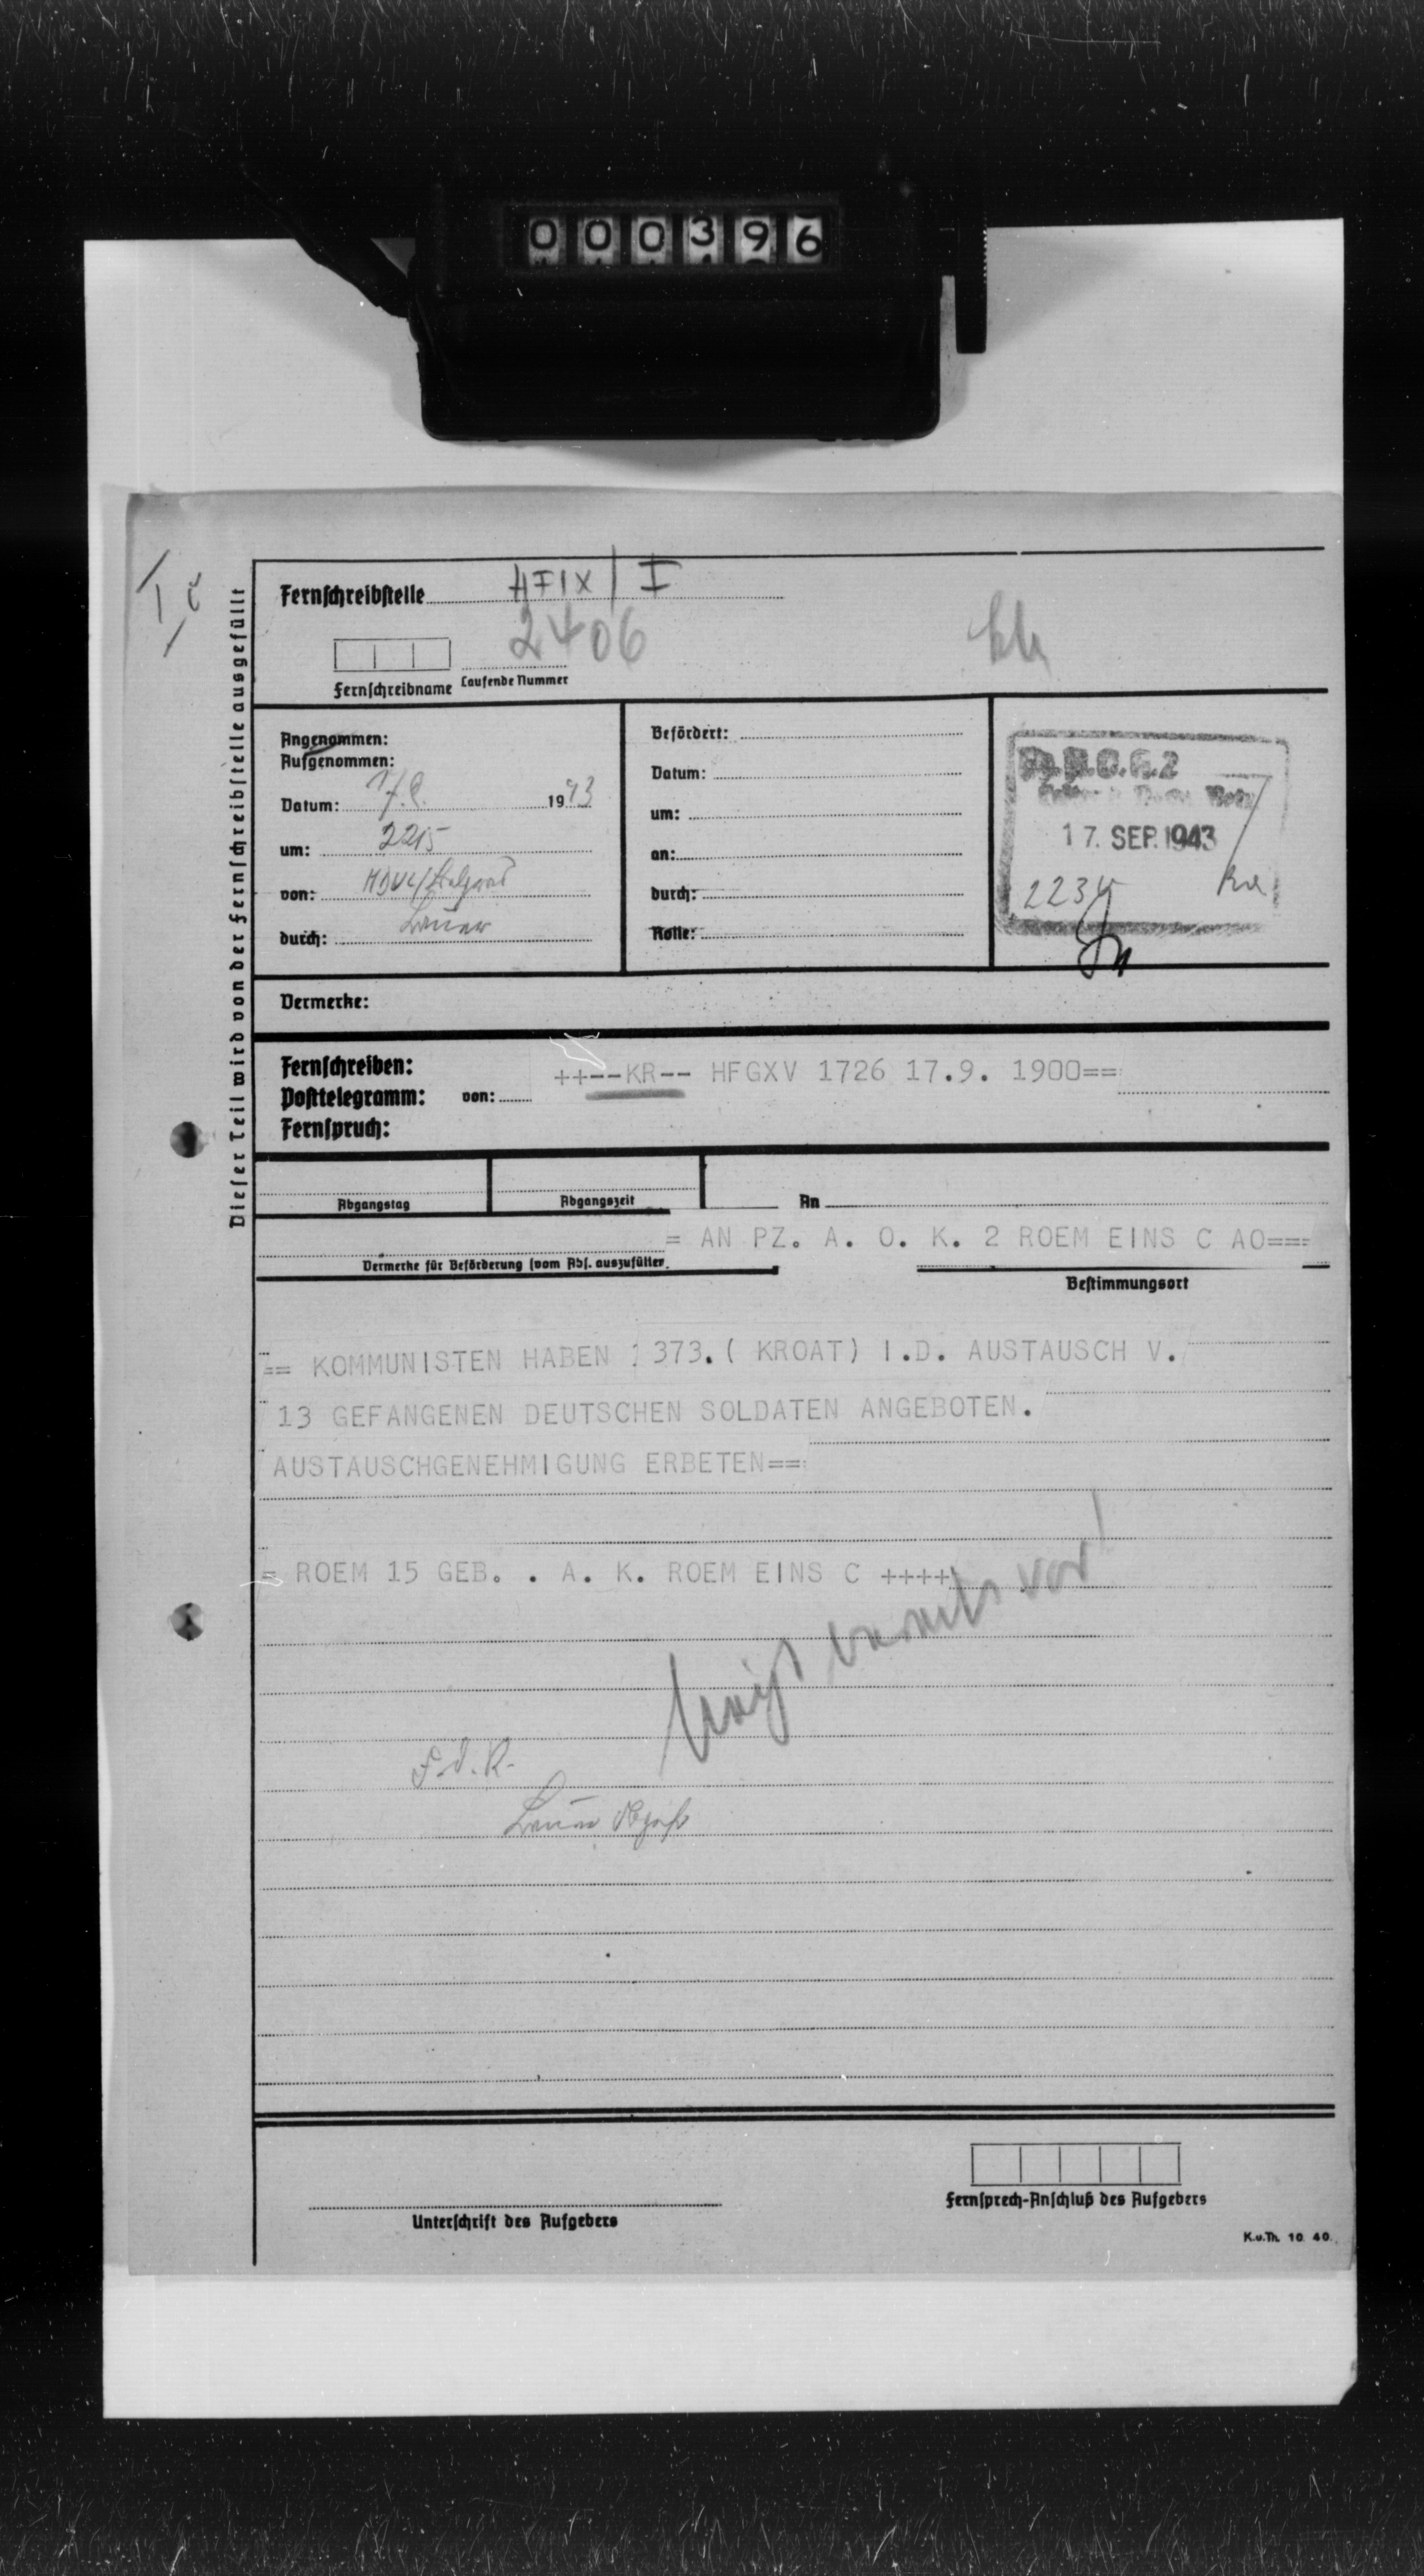 000396
I c
Dieser Teil wird von der Fernschreibstelle ausgefüllt
Fernschreibstelle HFIX / I
2406
Fernschreibname Laufende Nummer
Angenommen:
Aufgenommen:
Datum: 17.9. 1943
um: 2215
von:
durch:
Befördert:
Datum:
um:
an:
durch:
Rolle:
17. SEP. 1943
Vermerke:
Fernschreiben:
Posttelegramm: von:
Fernspruch:
++--KR-- HFGXV 1726 17.9. 1900==
Abgangstag
Abgangszeit
An
= AN PZ. A. O. K. 2 ROEM EINS C AO===
Vermerke für Beförderung (vom Abs. auszufüllen)
Bestimmungsort
== KOMMUNISTEN HABEN 373.( KROAT) I.D. AUSTAUSCH V.
13 GEFANGENEN DEUTSCHEN SOLDATEN ANGEBOTEN.
AUSTAUSCHGENEHMIGUNG ERBETEN==
= ROEM 15 GEB. . A. K. ROEM EINS C ++++
bereits vor!
F.d.R.
Unterschrift des Aufgebers
Fernsprech-Anschluß des Aufgebers
K.u.Th. 10. 40.